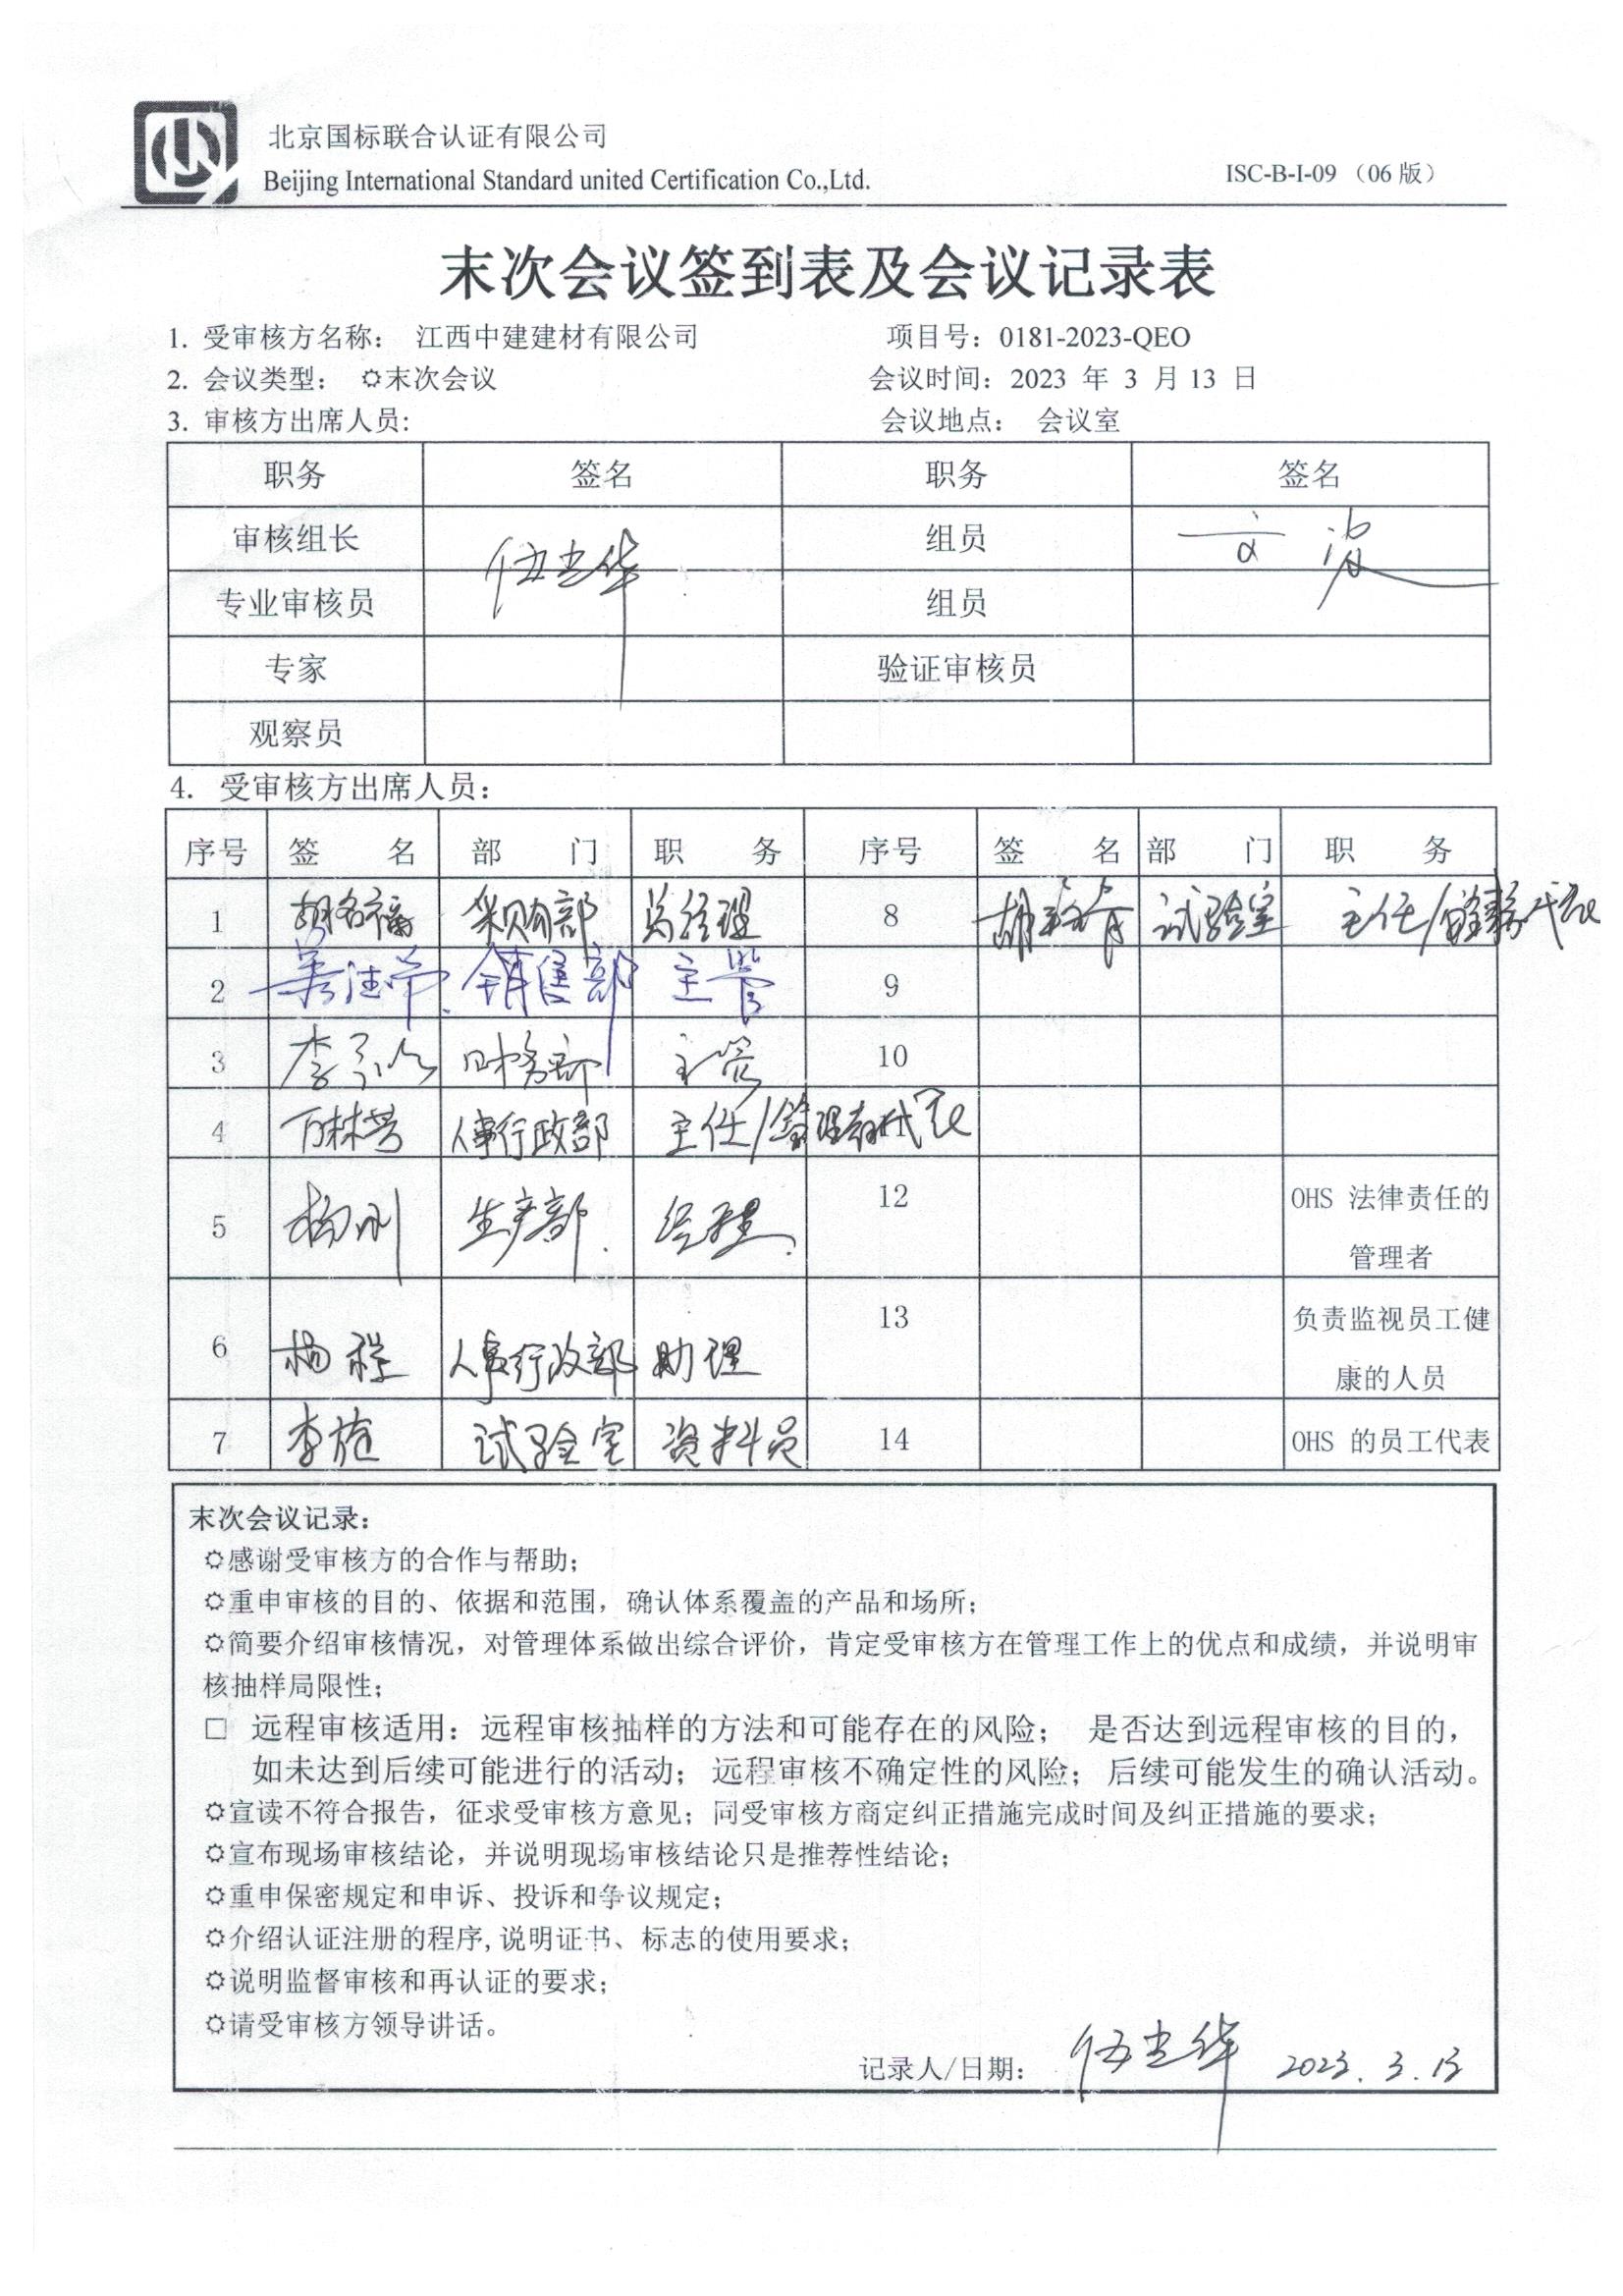 北京国标联合认证有限公司
Beijing International Standard united Certification Co.,Ltd.
ISC-B-I-09 （06版）
末次会议签到表及会议记录表
1. 受审核方名称： 江西中建建材有限公司 项目号：0181-2023-QEO
2. 会议类型： 末次会议 会议时间：2023 年 3 月 13 日
3. 审核方出席人员： 会议地点： 会议室
职务 签名 职务 签名
审核组长 组员 文波
专业审核员 组员
专家 验证审核员
观察员
4. 受审核方出席人员：
序号 签 名 部 门 职 务 序号 签 名 部 门 职 务
1 采购部 总经理 8 试验室 主任/
2 销售部 主管 9
3 财务部 主管 10
4 万林芳 人事行政部 主任/管理者代表
5 杨刚 生产部 经理 12 OHS 法律责任的
管理者
6 人事行政部 助理 13 负责监视员工健
康的人员
7 试验室 资料员 14 OHS 的员工代表
末次会议记录：
感谢受审核方的合作与帮助；
重申审核的目的、依据和范围，确认体系覆盖的产品和场所；
简要介绍审核情况，对管理体系做出综合评价，肯定受审核方在管理工作上的优点和成绩，并说明审
核抽样局限性；
□ 远程审核适用：远程审核抽样的方法和可能存在的风险； 是否达到远程审核的目的，
如未达到后续可能进行的活动；远程审核不确定性的风险； 后续可能发生的确认活动。
宣读不符合报告，征求受审核方意见；同受审核方商定纠正措施完成时间及纠正措施的要求；
宣布现场审核结论，并说明现场审核结论只是推荐性结论；
重申保密规定和申诉、投诉和争议规定；
介绍认证注册的程序,说明证书、标志的使用要求；
说明监督审核和再认证的要求；
请受审核方领导讲话。
记录人/日期： 2023.3.13